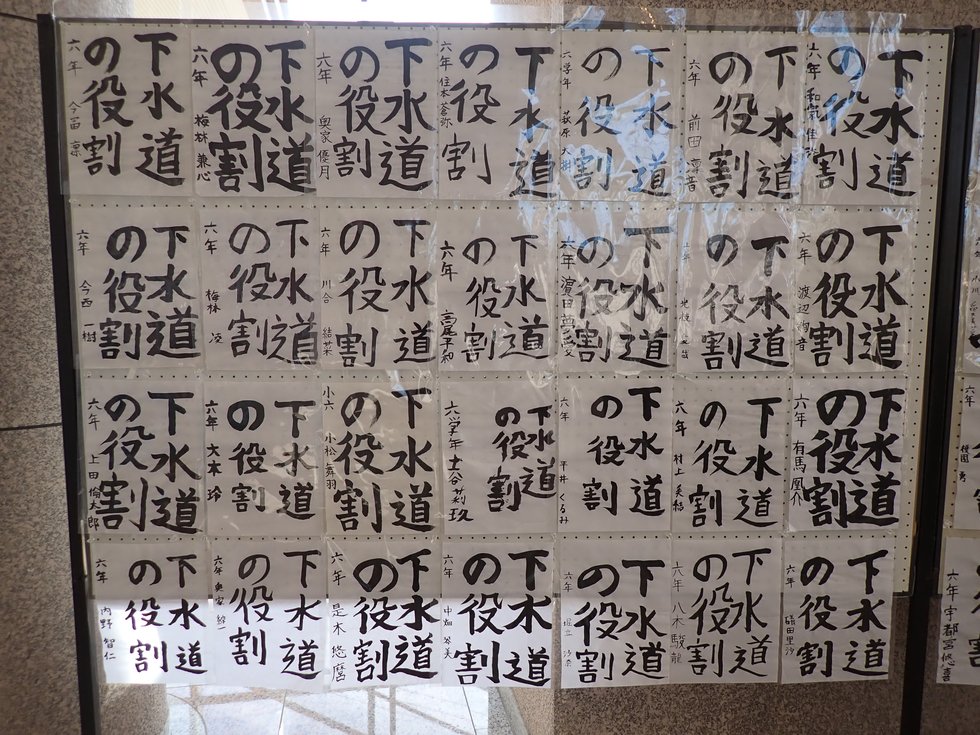 下水道
の役割
六年
下水道
の役割
六年 梅林 兼心
下水道
の役割
六年 奥家 優月
下水道
の役割
六年 住本 蒼弥
下水道
の役割
六学年 萩原 大樹
下水道
の役割
六年 前田
下水道
の役割
六年
下水道
の役割
六年 今西 一樹
下水道
の役割
六年 梅林
下水道
の役割
六年 川合 結菜
下水道
の役割
六年 高尾 平和
下水道
の役割
六年 濵田 夢愛
下水道
の役割
六年
下水道
の役割
六年 渡辺 絢音
下水道
の役割
六年 上田 倫太郎
下水道
の役割
六年 大本 玲
下水道
の役割
小六 小松 舞羽
下水道
の役割
六学年 土谷 莉玖
下水道
の役割
六年 平井 くるみ
下水道
の役割
六年 村上 美結
下水道
の役割
六年 有馬 凰介
下水道
の役割
六年 内野 智仁
下水道
の役割
六年 奥家 
下水道
の役割
六年 是木 悠磨
下水道
の役割
六年 中畑 
下水道
の役割
六年 堀立 沙奈
下水道
の役割
六年 八木 駿龍
下水道
の役割
六年 碩田 里沙
六年
六年 宇都宮 悠喜